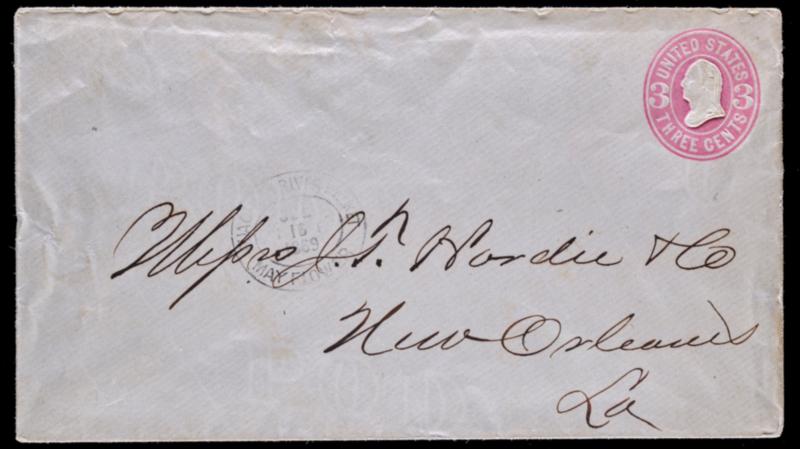 UNITED STATES
3 3
THREE CENTS
16
1869
MAY FLOWER
Messrs J. T. Hardie & Co
New Orleans
La